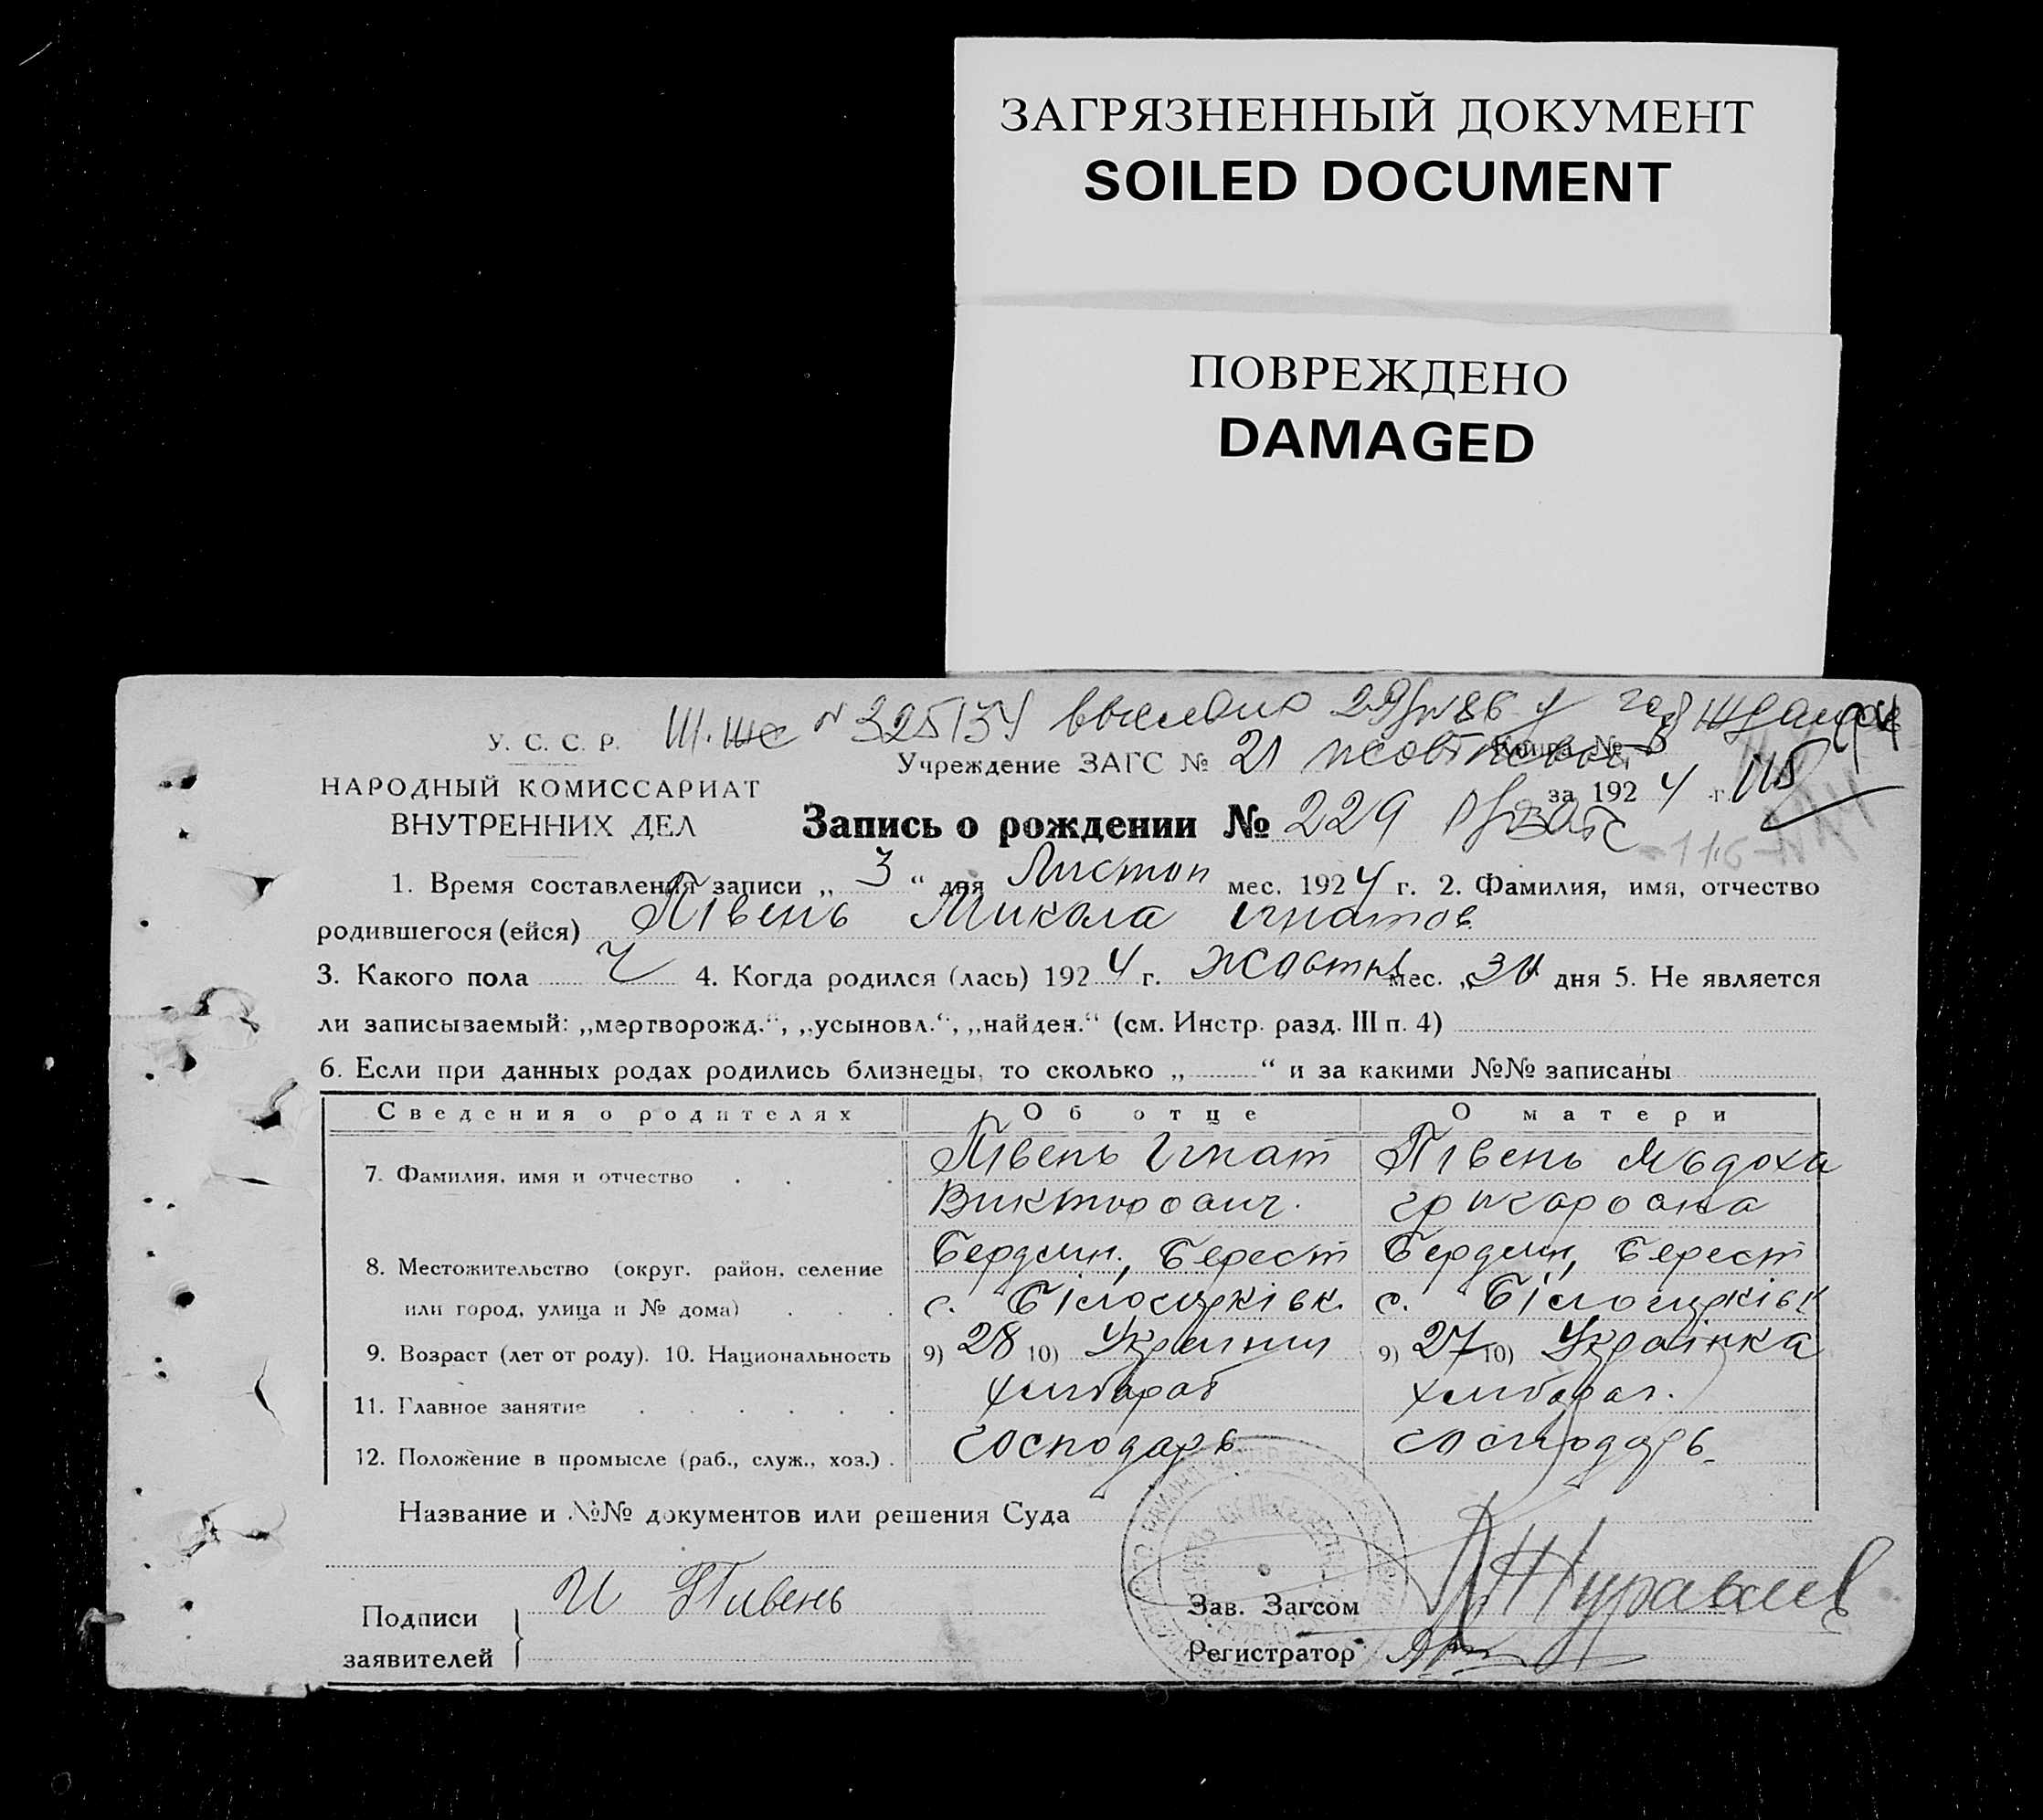 ЗАГРЯЗНЕННЫЙ ДОКУМЕНТ
SOILED DOCUMENT
ПОВРЕЖДЕНО
DAMAGED
N 325134
У. С. С. Р.
Учреждение ЗАГС № 21
Книга №
НАРОДНЫЙ КОМИССАРИАТ
за 1924 г.
ВНУТРЕННИХ ДЕЛ
Запись о рождении № 229
1. Время составления записи „ 3 “ дня Листоп мес. 1924 г. 2. Фамилия, имя, отчество
родившегося (ейся) Півень Микола Игнатов
3. Какого пола Ч 4. Когда родился (лась) 1924 г. Жовтня мес. „ 30 дня 5. Не является
ли записываемый: „мертворожд.“, „усыновл.“, „найден.“ (см. Инстр. разд. III п. 4)
6. Если при данных родах родились близнецы, то сколько „ “ и за какими №№ записаны
Сведения о родителях Об отце О матери
7. Фамилия, имя и отчество Півень Игнат Півень Явдоха
Викторович. Григоровна
8. Местожительство (округ. район. селение Бердян., Берест Бердян, Берест
или город, улица и № дома) с. с.
9. Возраст (лет от роду). 10. Национальность 9) 28 10) 9) 27 10) Українка
11. Главное занятие хлибороб хлибороб.
12. Положение в промысле (раб., служ., хоз.) господарь господарь
Название и №№ документов или решения Суда
Подписи заявителей И Пивень
Зав. Загсом Журавлев
Регистратор